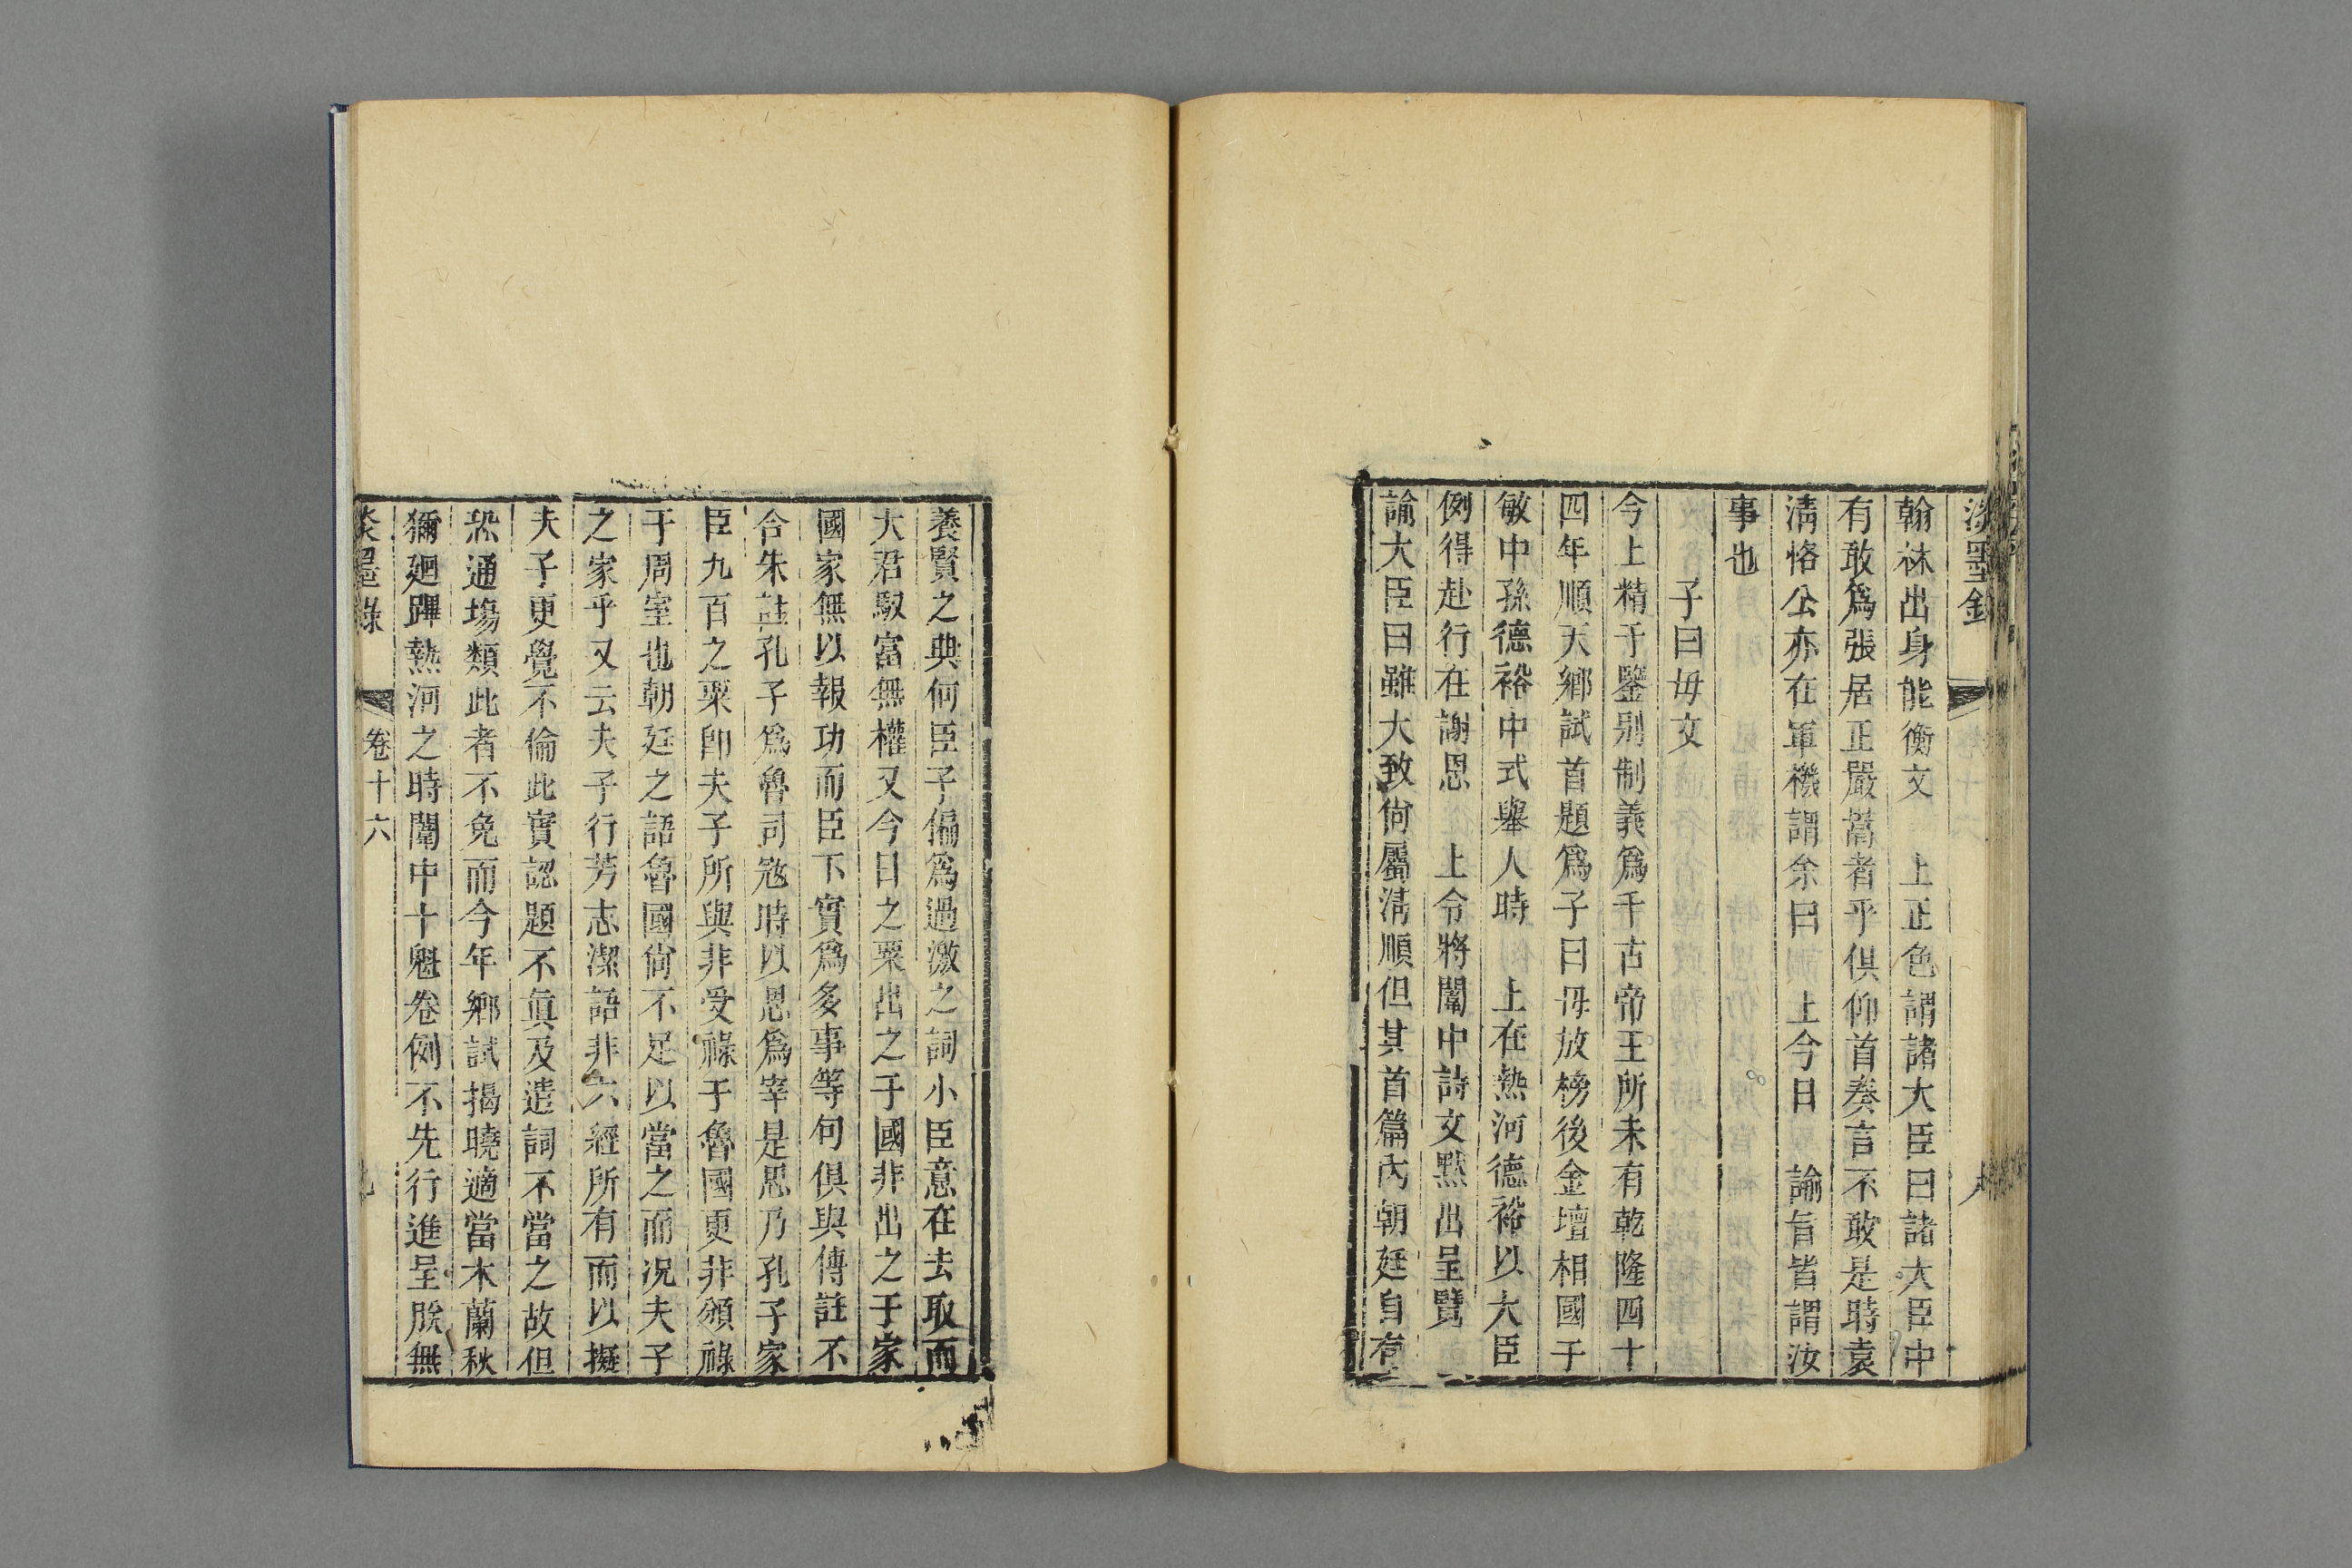 淡墨錄
翰林出身能衡文　上正色謂諸大臣曰諸大臣中
有敢爲張居正嚴嵩者乎俱仰首奏言不敢是時袁
清恪公亦在軍機謂余曰　上今日　諭旨皆謂汝
事也
子曰毋文
今上精于鑒别制義爲千古帝王所未有乾隆四十
四年順天鄉試首題爲子曰毋放榜後金壇相國于
敏中孫德裕中式舉人時　上在熱河德裕以大臣
例得赴行在謝恩　上令將闈中詩文默出呈覽
諭大臣曰雖大致尙屬清順但其首篇內朝廷自有
養賢之典何臣子偏爲過激之詞小臣意在去取而
大君馭富無權又今日之粟出之于國非出之于家
國家無以報功而臣下實爲多事等句俱與傳註不
合朱註孔子爲魯司寇時以思爲宰是思乃孔子家
臣九百之粟卽夫子所與非受祿于魯國更非頒祿
于周室也朝廷之語魯國尙不足以當之而况夫子
之家乎又云夫子行芳志潔語非六經所有而以擬
夫子更覺不倫此實認題不眞及遣詞不當之故但
恐通塲類此者不免而今年鄉試揭曉適當木蘭秋
獮廻蹕熱河之時闈中十魁卷例不先行進呈朕無
淡墨錄
卷十六